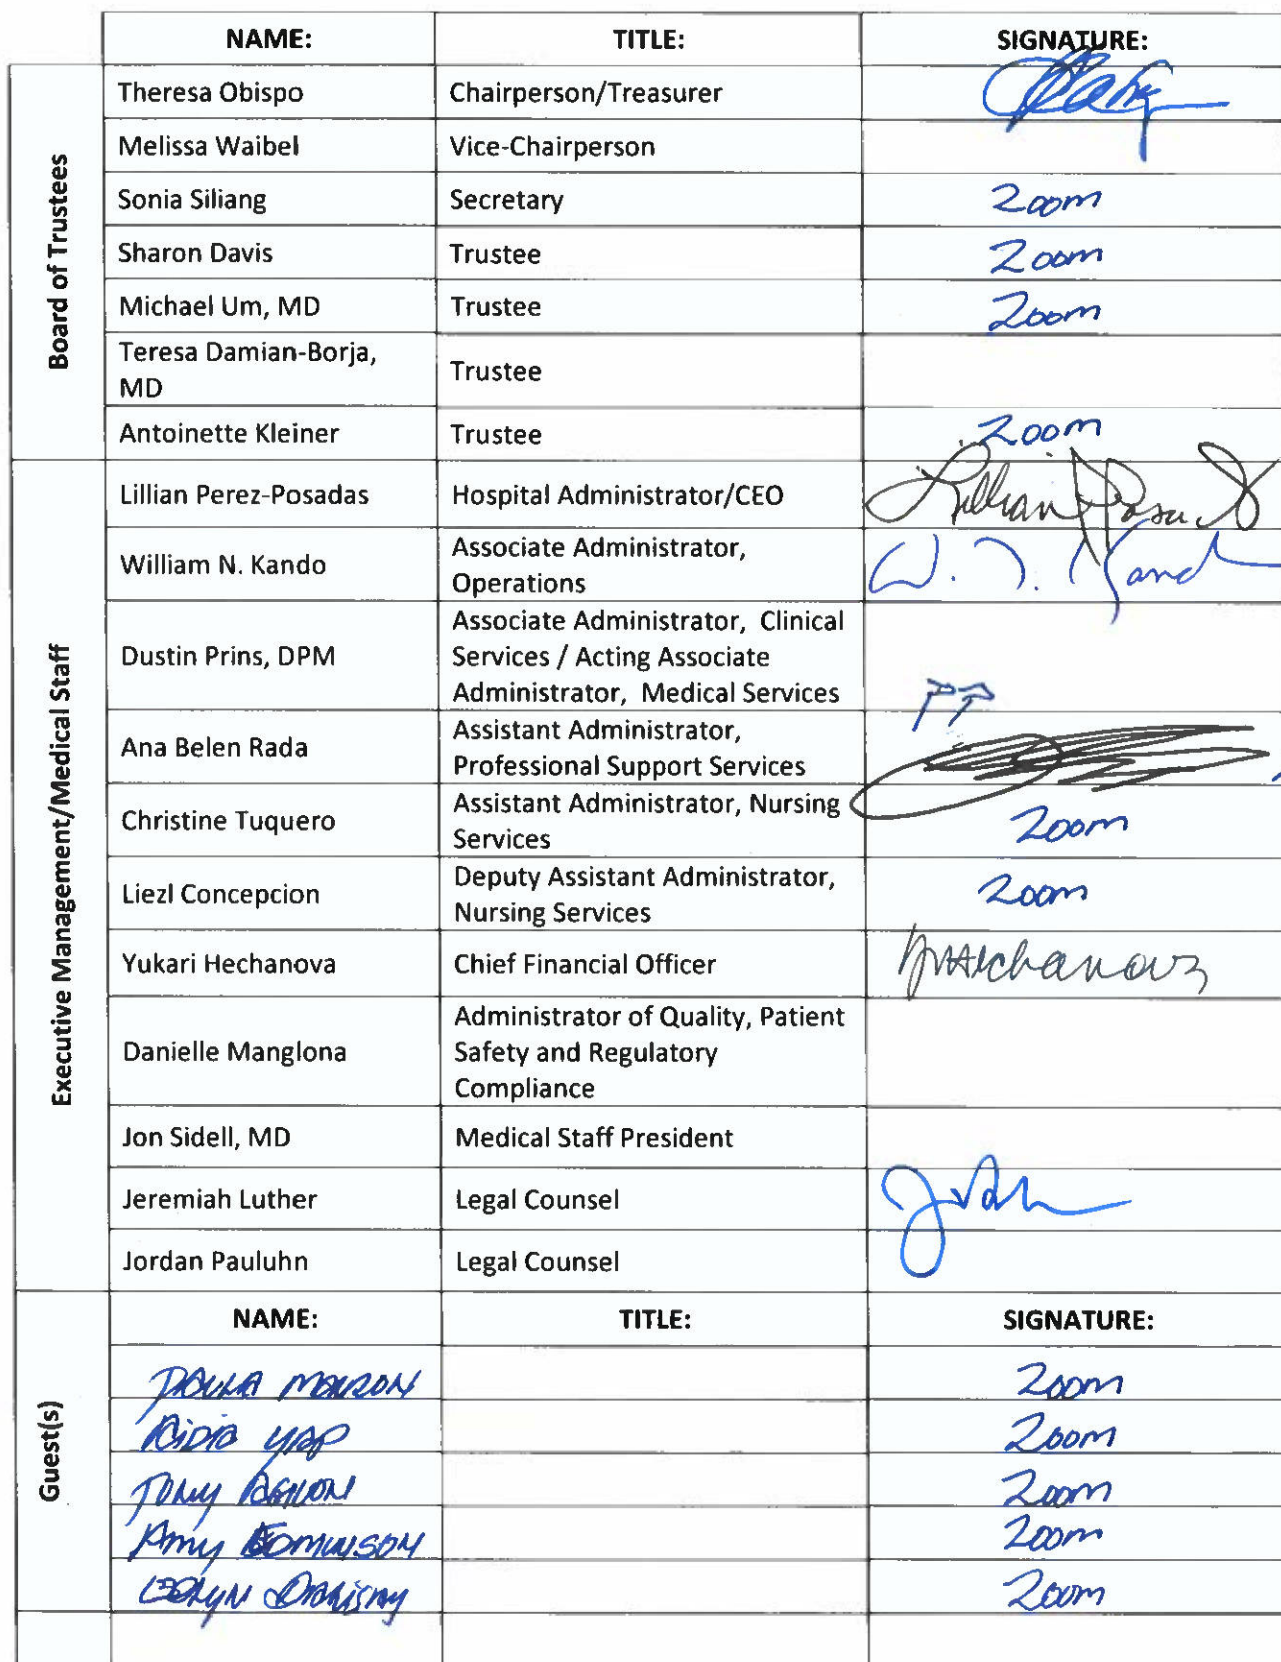 NAME: TITLE: SIGNATURE:
Board of Trustees
Theresa Obispo Chairperson/Treasurer
Melissa Waibel Vice-Chairperson
Sonia Siliang Secretary Zoom
Sharon Davis Trustee Zoom
Michael Um, MD Trustee Zoom
Teresa Damian-Borja,
MD Trustee
Antoinette Kleiner Trustee Zoom
Executive Management/Medical Staff
Lillian Perez-Posadas Hospital Administrator/CEO Lillian
William N. Kando Associate Administrator,
Operations W.
Dustin Prins, DPM Associate Administrator, Clinical
Services / Acting Associate
Administrator, Medical Services
Ana Belen Rada Assistant Administrator,
Professional Support Services
Christine Tuquero Assistant Administrator, Nursing
Services Zoom
Liezl Concepcion Deputy Assistant Administrator,
Nursing Services Zoom
Yukari Hechanova Chief Financial Officer
Danielle Manglona Administrator of Quality, Patient
Safety and Regulatory
Compliance
Jon Sidell, MD Medical Staff President
Jeremiah Luther Legal Counsel
Jordan Pauluhn Legal Counsel
Guest(s)
NAME: TITLE: SIGNATURE:
PAULA Zoom
YAP Zoom
TONY Zoom
Amy Zoom
Zoom